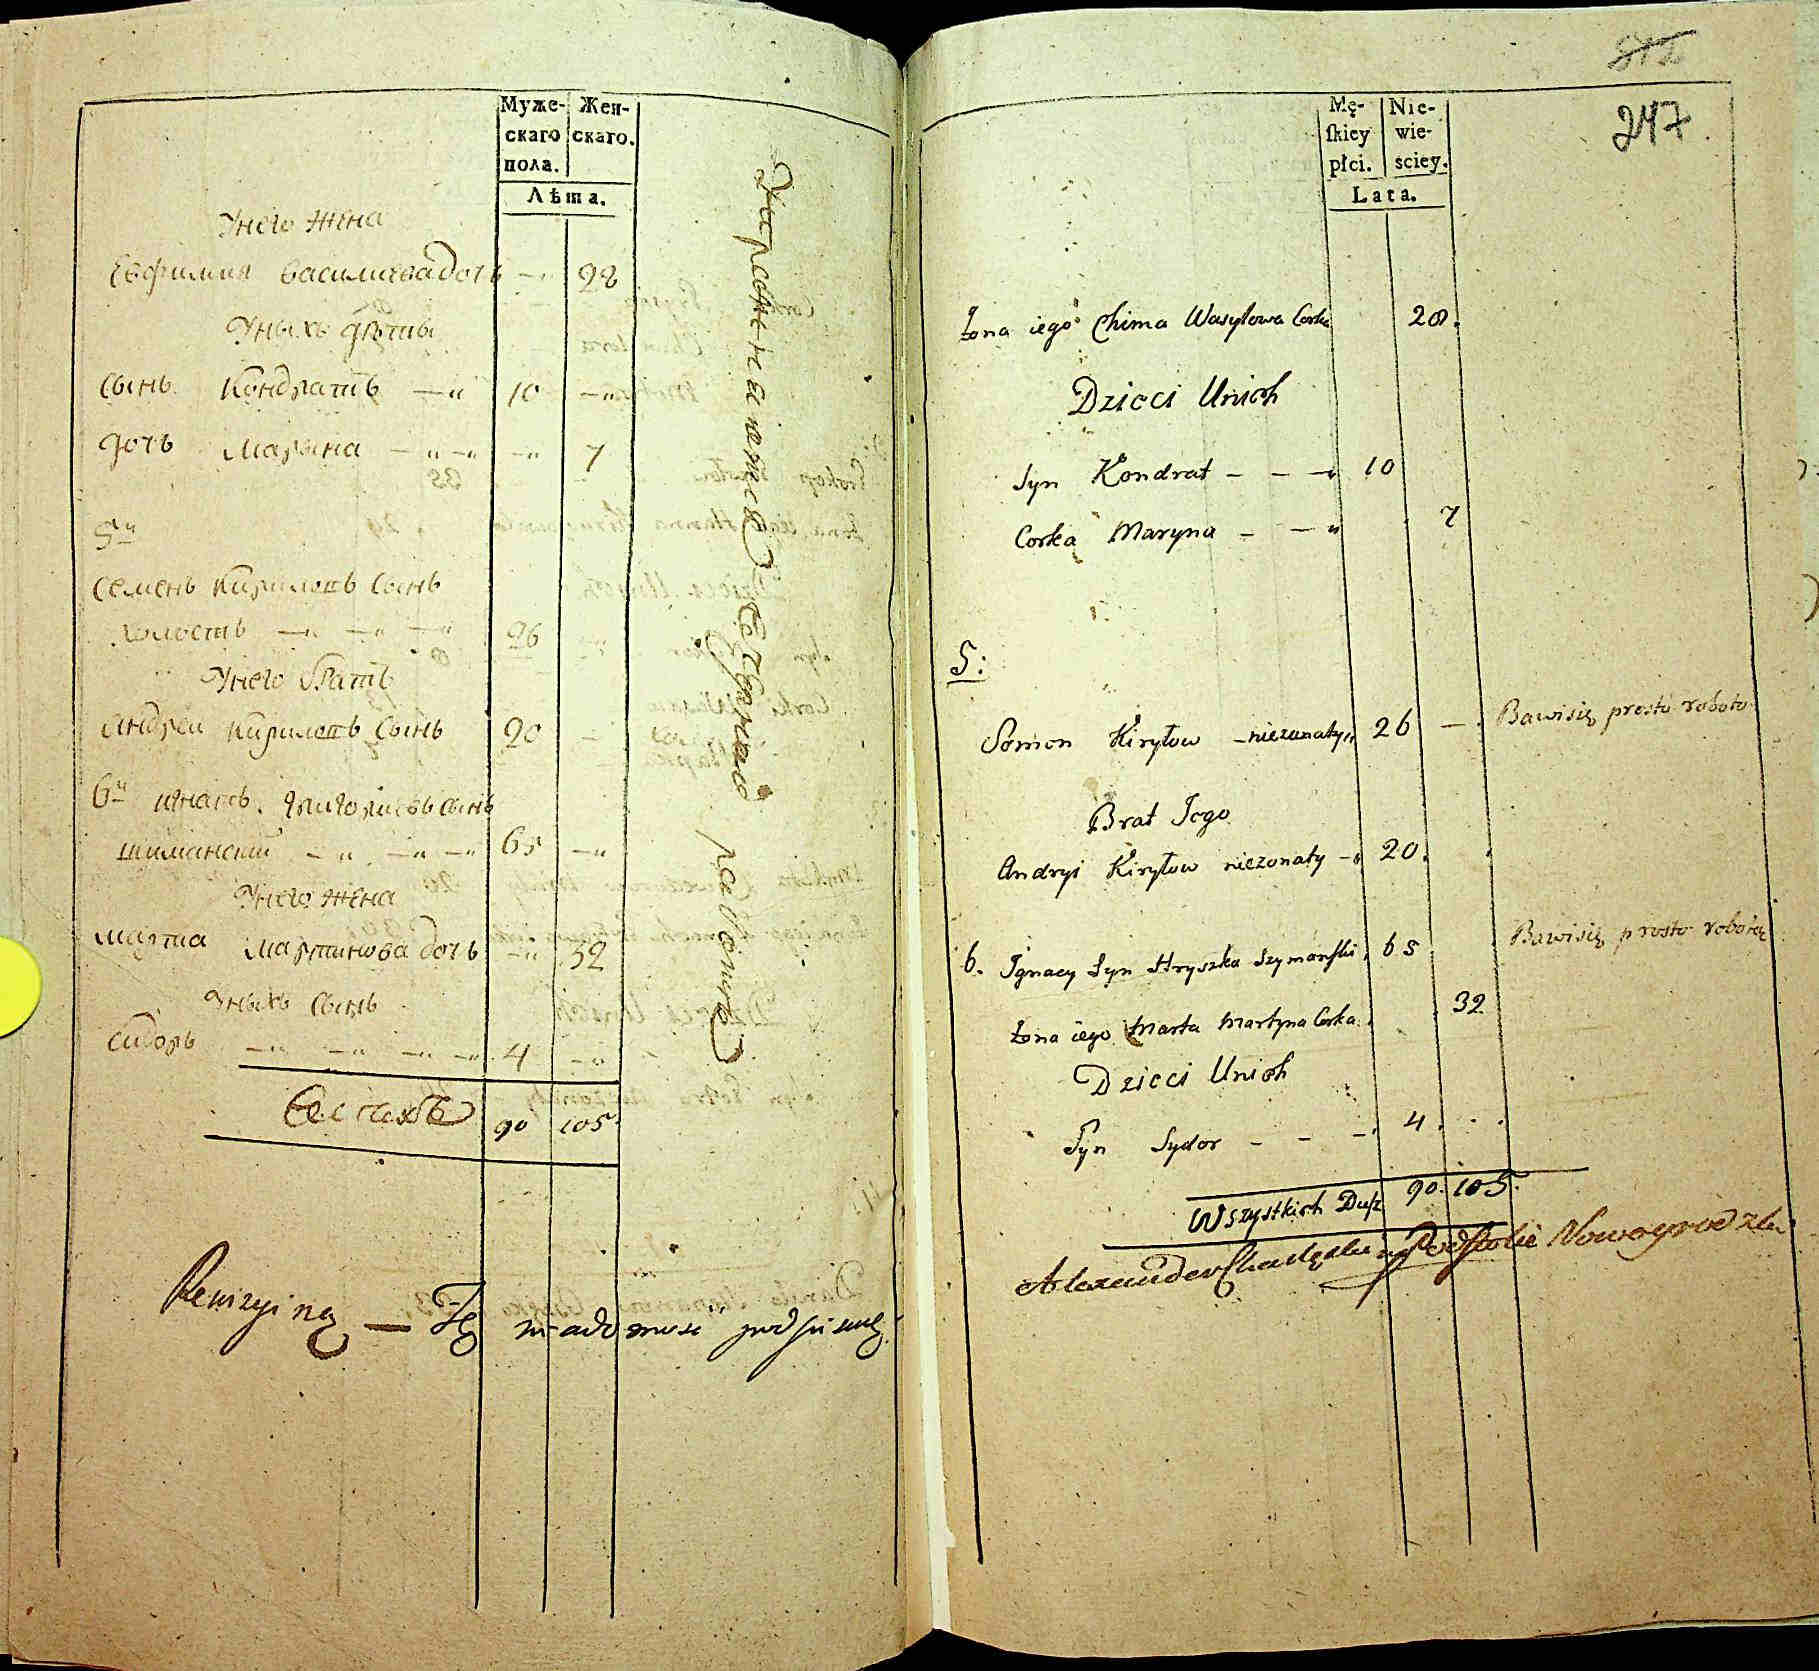 Муже-
скаго
пола.
Жен-
скаго.
Лѣта.
У него жена
Евфимия Василиева дочь —„ 28
У ныхъ дѣты
Сынъ Кондратъ —„ 10 —„
Дочь Марына —„—„ —„ 7
5й
Семенъ Кириловъ Сынъ
холостъ —„ —„ —„ 26 —„
У него братъ
Андреи Кириловъ Сынъ 20 —
6й Игнатъ Григориевъ Сынъ
Шиманский —„ —„ —„ 65 —„
У него жена
Марта Мартинова дочь —„ 32
У ныхъ Сынъ
Сидоръ —„ —„ —„ —„ 4 —„
Всехъ 90 105.
Rewizyiną — Ję
247
Mę-
ſkiey
płci.
Nie-
wie-
sciey.
Lata.
Żona iego Chima Wasylowa Corka 28.
Dzieci Unich
Syn Kondrat — — —„ 10
Corka Maryna — —„ 7
5:
Semen Kiryłow —niezonaty„ 26 — Bawisię prosto roboto
Brat Jego
Andryi Kiryłow niezonaty —„ 20.
6. Ignacy Syn Hryszka Szymanſki, 65 Bawisię prosto robotą
Żona iego Marta Martyna Corka. 32
Dzieci Unich
Syn Sydor — — —. 4.
Wszystkich Dusz 90. 105.
Alexander Podstolic Nowogrodzki